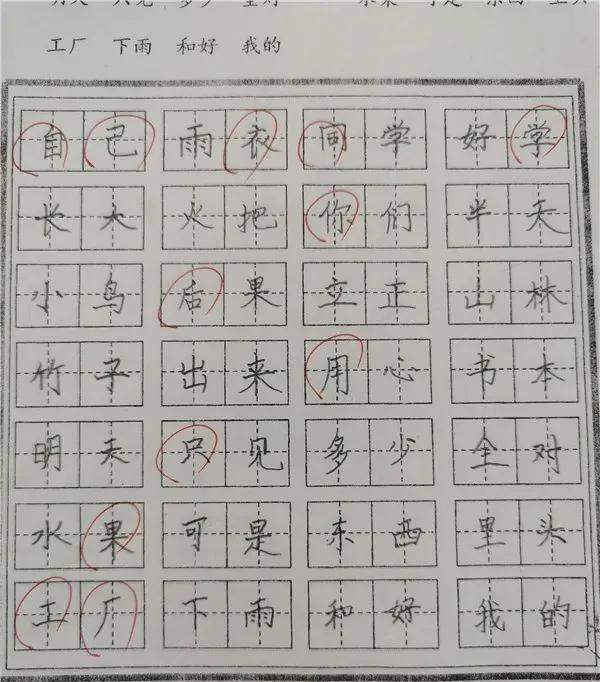 工厂 下雨 和好 我的
自己 雨衣 同学 好学
长大 火把 你们 半天
小鸟 后果 立正 山林
竹子 出来 用心 书本
明天 只见 多少 全对
水果 可是 东西 里头
工厂 下雨 和好 我的